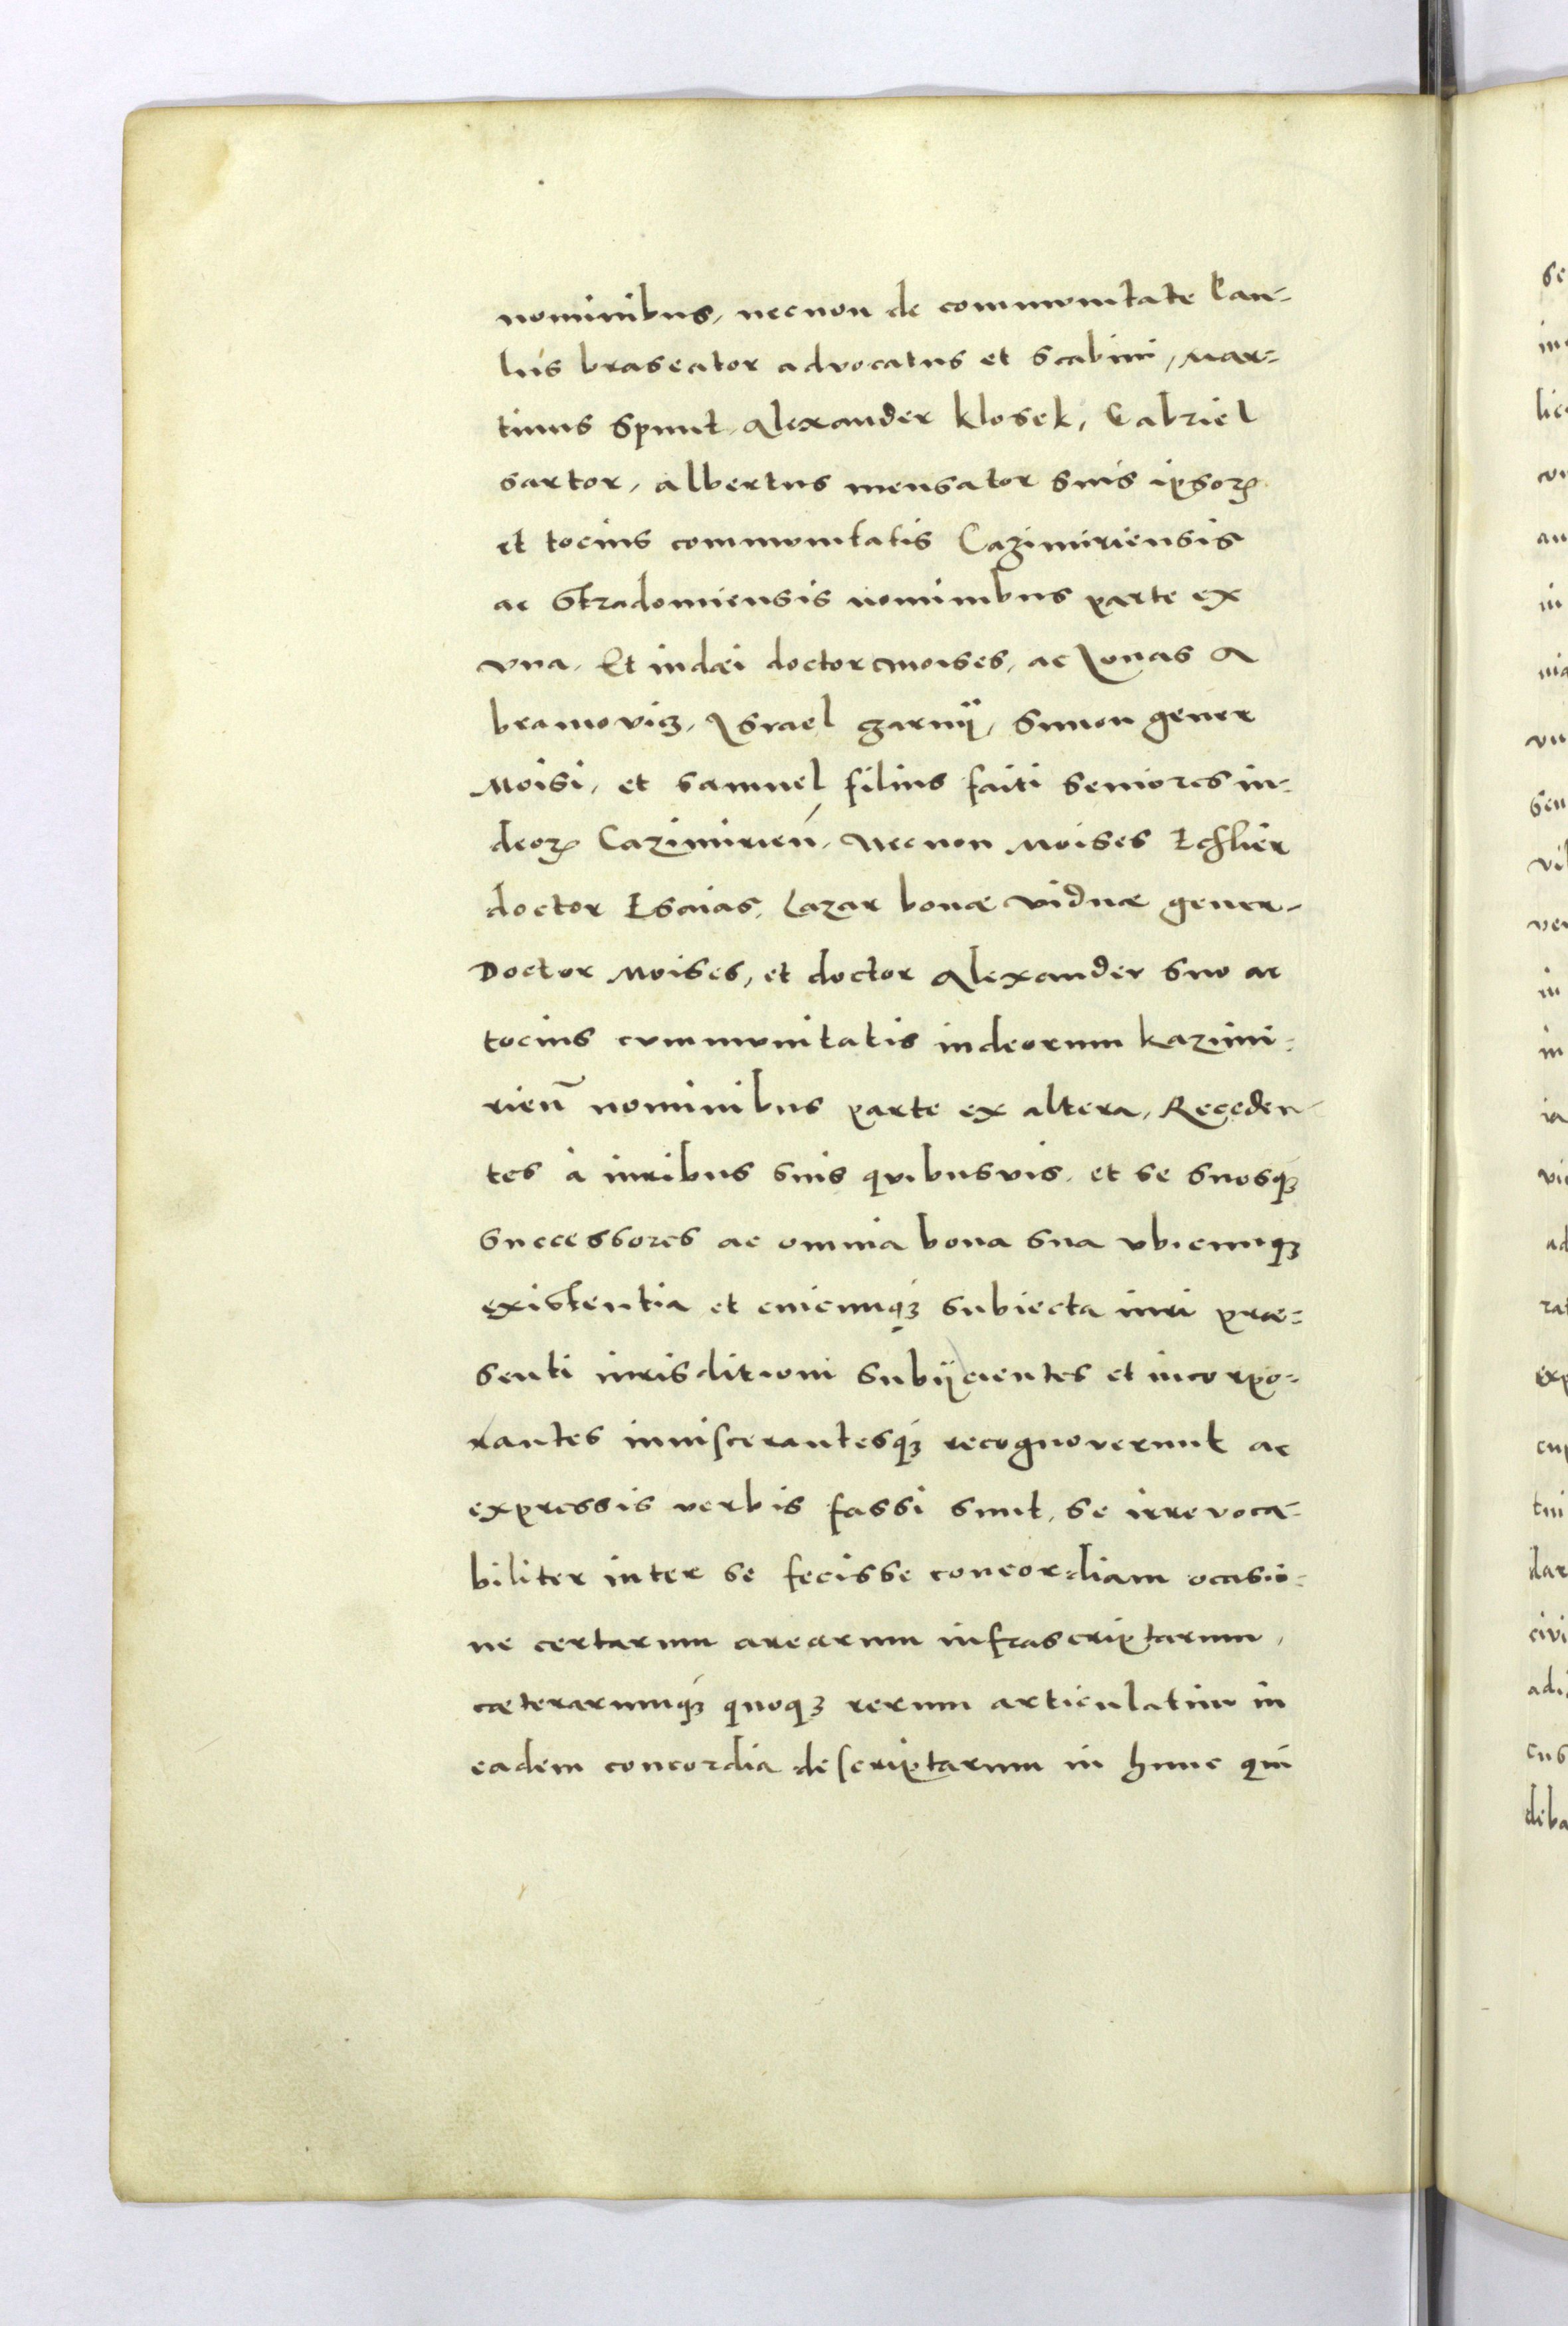 nominibus, necnon de communitate Pau-
lus braseator advocatus et scabini, Mar=
tinus Spunt, Alexander Klosek, Gabriel
sartor, albertus mensator suis ipsoꝝ
et tocius communitatis Cazimiriensis
ac Stradomiensis nominibus parte ex
vna. Et iudæi doctor Moises, ac Jonas A
bramovicz, Israel zarnÿ, Simon gener
Moisi, et Samuel filius faiti seniores iu=
deoꝝ Cazimirień, Necnon Moises Echlier
doctor Esaias, Lazar bonæ viduæ gener,
Doctor Moises, et doctor Alexander suo ac
tocius communitatis iudeorum kazimi=
rień nominibus parte ex altera, Receden-
tes à iuribus suis quibusvis, et se suosqꝫ
successores ac omnia bona sua vbicunqꝫ
existentia et cuicunqꝫ subiecta iuri præ=
senti iurisditioni subÿcientes et incorpo=
rantes inviscerantesqꝫ recognoverunt ac
expressis verbis fassi sunt, se irrevoca-
biliter inter se fecisse concordiam ocasio=
ne certarum arearum infrascriptarum,
cæterarumqꝫ quoqꝫ rerum articulatim in
eadem concordia descriptarum in hunc qui